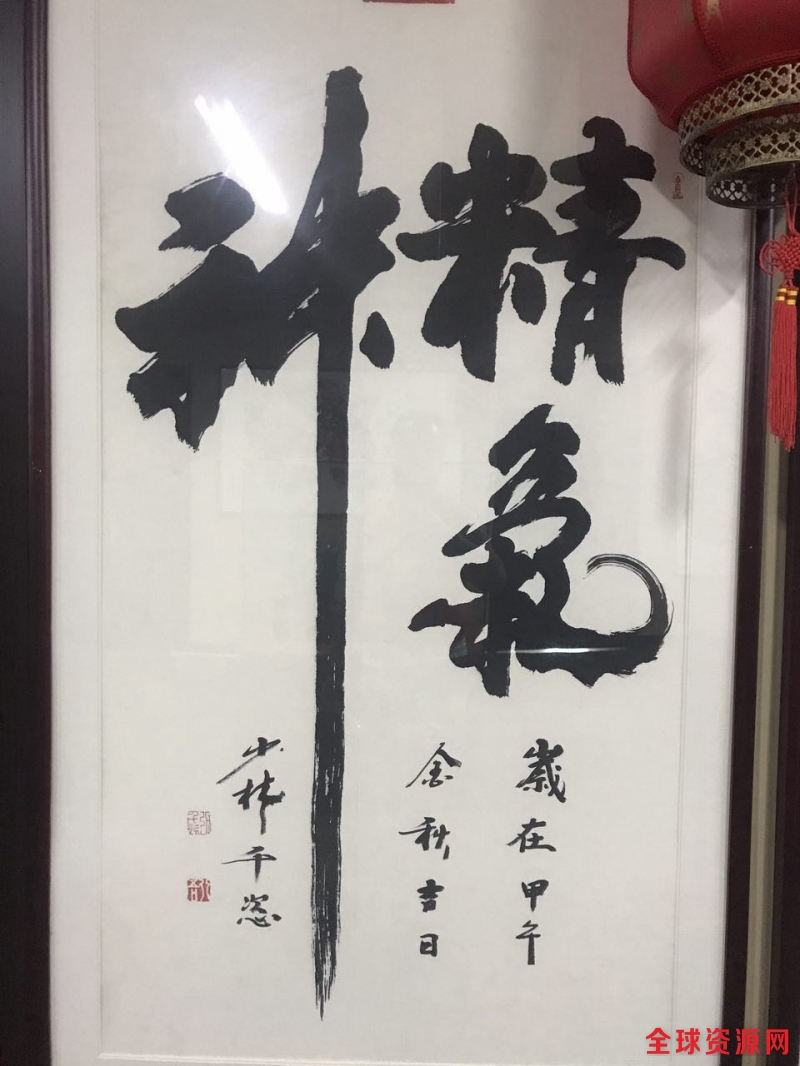 精氣
神
歲在甲午
金秋吉日
少林
全球资源网